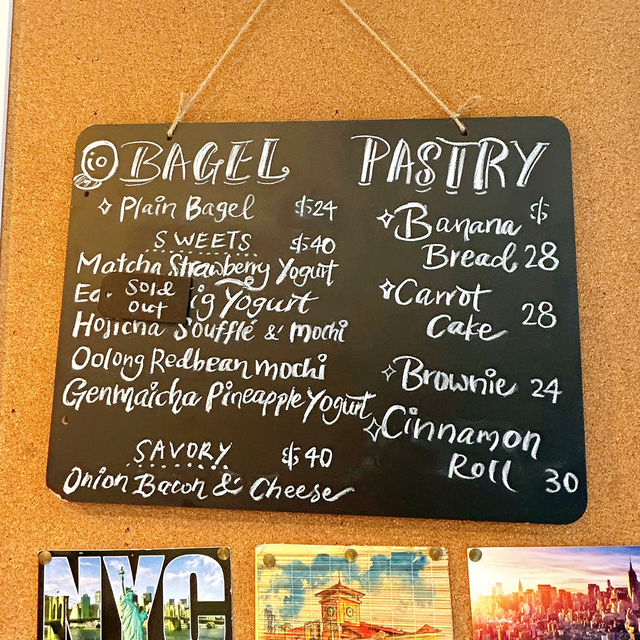 BAGEL
Plain Bagel $24
SWEETS $40
Matcha Strawberry Yogurt
Sold out
Yogurt
Hojicha Soufflé & mochi
Oolong Redbean mochi
Genmaicha Pineapple Yogurt
SAVORY $40
Onion Bacon & Cheese
PASTRY
$
Banana
Bread 28
Carrot
Cake 28
Brownie 24
Cinnamon
Roll 30
NYC